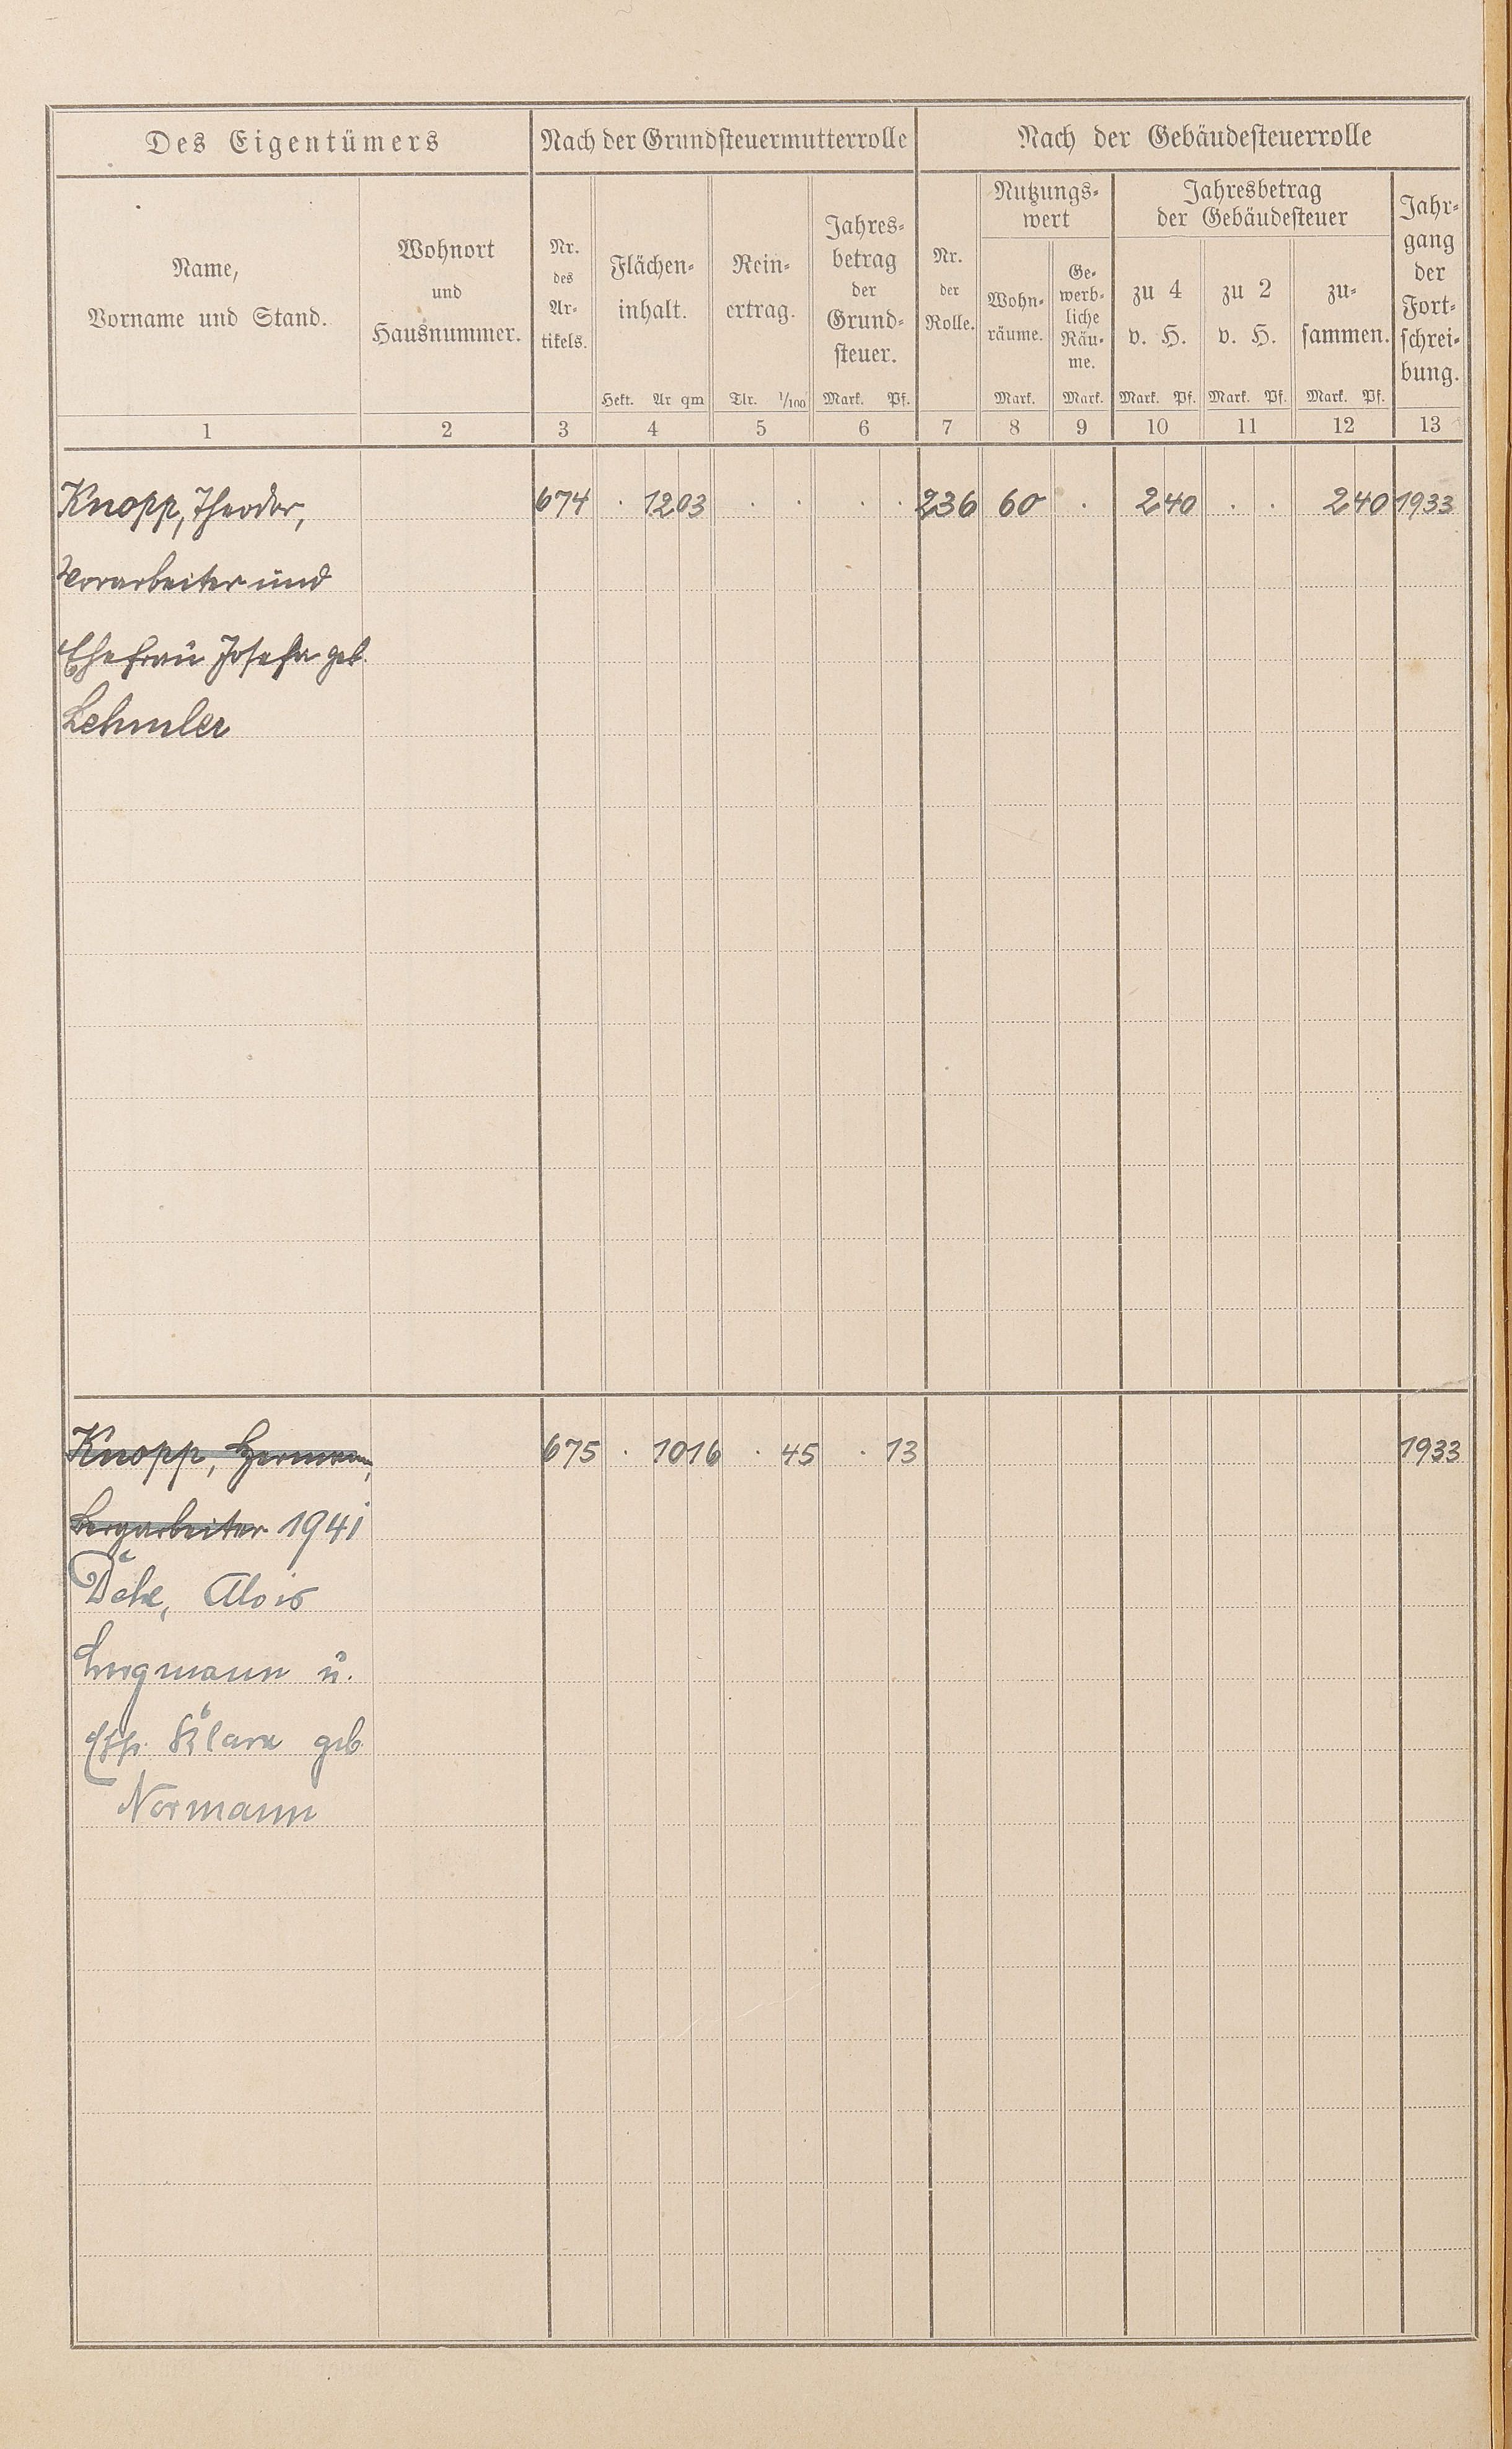 Des Eigentümers
Nach der Grundsteuermutterrolle
Nach der Gebäudesteuerrolle
Name,
Vorname und Stand.
Wohnort
und
Hausnummer.
Nr.
des
Ar-
tikels.
Flächen-
inhalt.
Hekt. Ar qm
Rein-
ertrag.
Tlr. 1/100
Jahres-
betrag
der
Grund-
steuer.
Mark. Pf.
Nr.
der
Rolle.
Nutzungs-
wert
Wohn-
räume.
Mark.
Ge-
werb-
liche
Räu-
me.
Mark.
Jahresbetrag
der Gebäudesteuer
zu 4
v. H.
Mark. Pf.
zu 2
v. H.
Mark. Pf.
zu-
sammen.
Mark. Pf.
Jahr-
gang
der
Fort-
schrei-
bung.
1 2 3 4 5 6 7 8 9 10 11 12 13
Knopp, Theodor, 674 . 1203 . . . . 236 60 . 240 . . 240 1933
Vorarbeiter und
Ehefrau Josefa geb.
Lehmler
Knopp, Hermann, 675 . 1016 . 45 . 13 1933
Bergarbeiter 1941
Alois
Bergmann u.
Klara geb
Normann